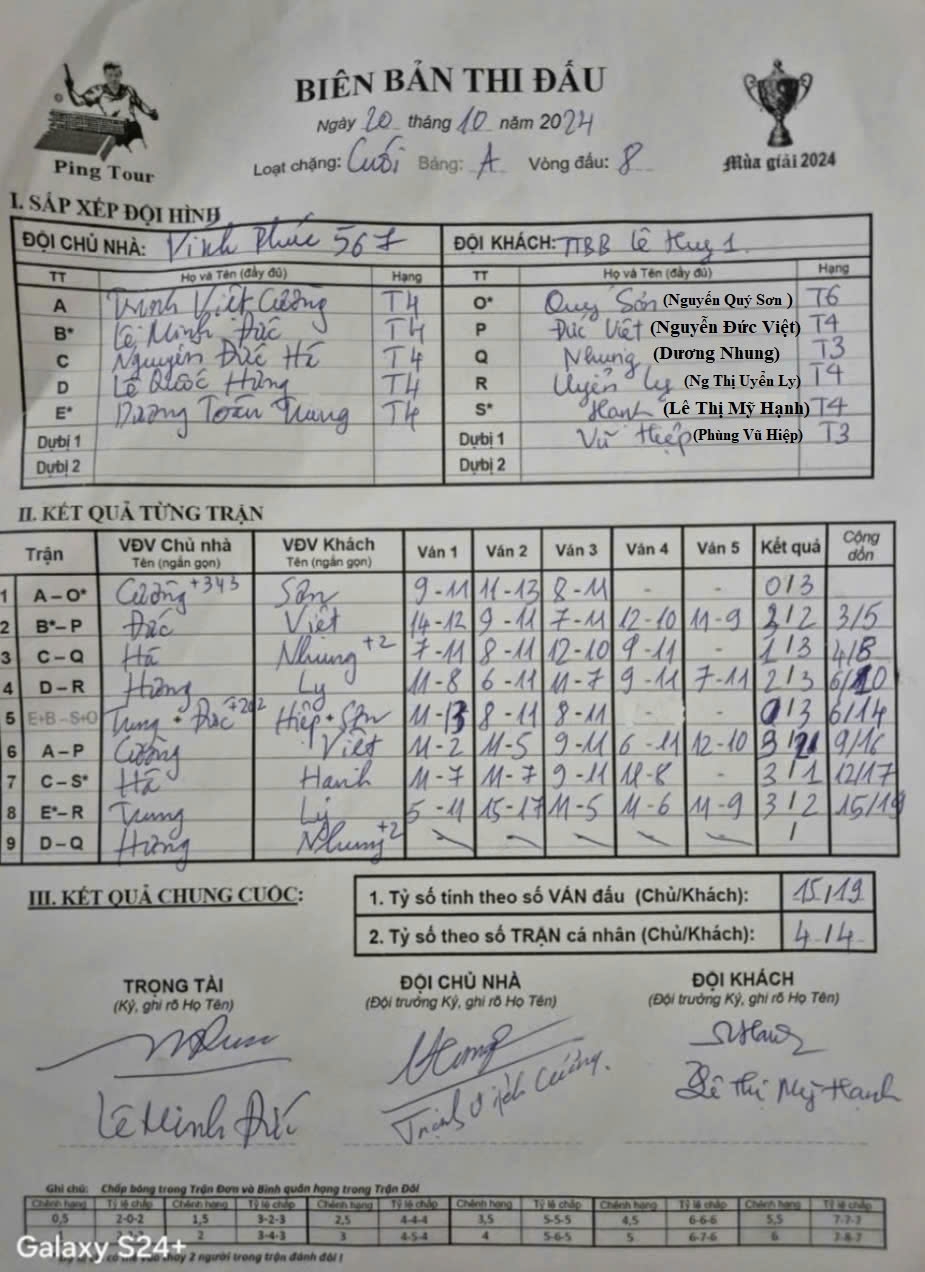 BIÊN BẢN THI ĐẤU
Ngày 20 tháng 10 năm 2024
Ping Tour
Loạt chặng: Cuối Bảng: A Vòng đấu: 8
Mùa giải 2024
I. SẮP XẾP ĐỘI HÌNH
ĐỘI CHỦ NHÀ: Vĩnh Phúc 567 ĐỘI KHÁCH: TTBB Lê Huy 1
TT Họ và Tên (đầy đủ) Hạng TT Họ và Tên (đầy đủ) Hạng
A Trịnh Việt Cường T4 O* Quý Sơn (Nguyễn Quý Sơn ) T6
B* Lê Minh Đức T4 P Đức Việt (Nguyễn Đức Việt) T4
C Nguyễn Đức Hà T4 Q Nhung (Dương Nhung) T3
D Lê Quốc Hùng T4 R Uyển Ly (Ng Thị Uyển Ly) T4
E* Dương Toàn Trung T4 S* Hạnh (Lê Thị Mỹ Hạnh) T4
Dựbị 1 Dựbị 1 Vũ Hiệp (Phùng Vũ Hiệp) T3
Dựbị 2 Dựbị 2
II. KẾT QUẢ TỪNG TRẬN
Trận VĐV Chủ nhà Tên (ngắn gọn) VĐV Khách Tên (ngắn gọn) Ván 1 Ván 2 Ván 3 Ván 4 Ván 5 Kết quả Cộng dồn
1 A – O* Cường +343 Sơn 9-11 11-13 8-11 - - 0/3
2 B*– P Đức Việt 14-12 9-11 7-11 12-10 11-9 3/2 3/5
3 C – Q Hà Nhung +2 7-11 8-11 12-10 9-11 - 1/3 4/8
4 D – R Hùng Ly 11-8 6-11 11-7 9-11 7-11 2/3 6/10
5 E+B – S+O Trung + Đức +202 Hiệp + Sơn 11-13 8-11 8-11 - - 0/3 6/14
6 A – P Cường Việt 11-2 11-5 9-11 6-11 12-10 3/2 9/16
7 C – S* Hà Hạnh 11-7 11-7 9-11 11-8 - 3/1 12/17
8 E*– R Trung Ly 5-11 15-17 11-5 11-6 11-9 3/2 15/19
9 D – Q Hùng Nhung +2 /
III. KẾT QUẢ CHUNG CUỘC:
1. Tỷ số tính theo số VÁN đấu (Chủ/Khách): 15/19
2. Tỷ số theo số TRẬN cá nhân (Chủ/Khách): 4/4
TRỌNG TÀI ĐỘI CHỦ NHÀ ĐỘI KHÁCH
(Ký, ghi rõ Họ Tên) (Đội trưởng Ký, ghi rõ Họ Tên) (Đội trưởng Ký, ghi rõ Họ Tên)
Lê Minh Đức Trịnh Việt Cường. Lê Thị Mỹ Hạnh
Ghi chú: Chấp bóng trong Trận Đơn và Bình quân hạng trong Trận Đôi
Chênh hạng Tỷ lệ chấp Chênh hạng Tỷ lệ chấp Chênh hạng Tỷ lệ chấp Chênh hạng Tỷ lệ chấp Chênh hạng Tỷ lệ chấp Chênh hạng Tỷ lệ chấp
0,5 2-0-2 1,5 3-2-3 2,5 4-4-4 3,5 5-5-5 4,5 6-6-6 5,5 7-7-7
2 3-4-3 3 4-5-4 4 5-6-5 5 6-7-6 6 7-8-7
thay 2 người trong trận đánh đôi !
Galaxy S24+